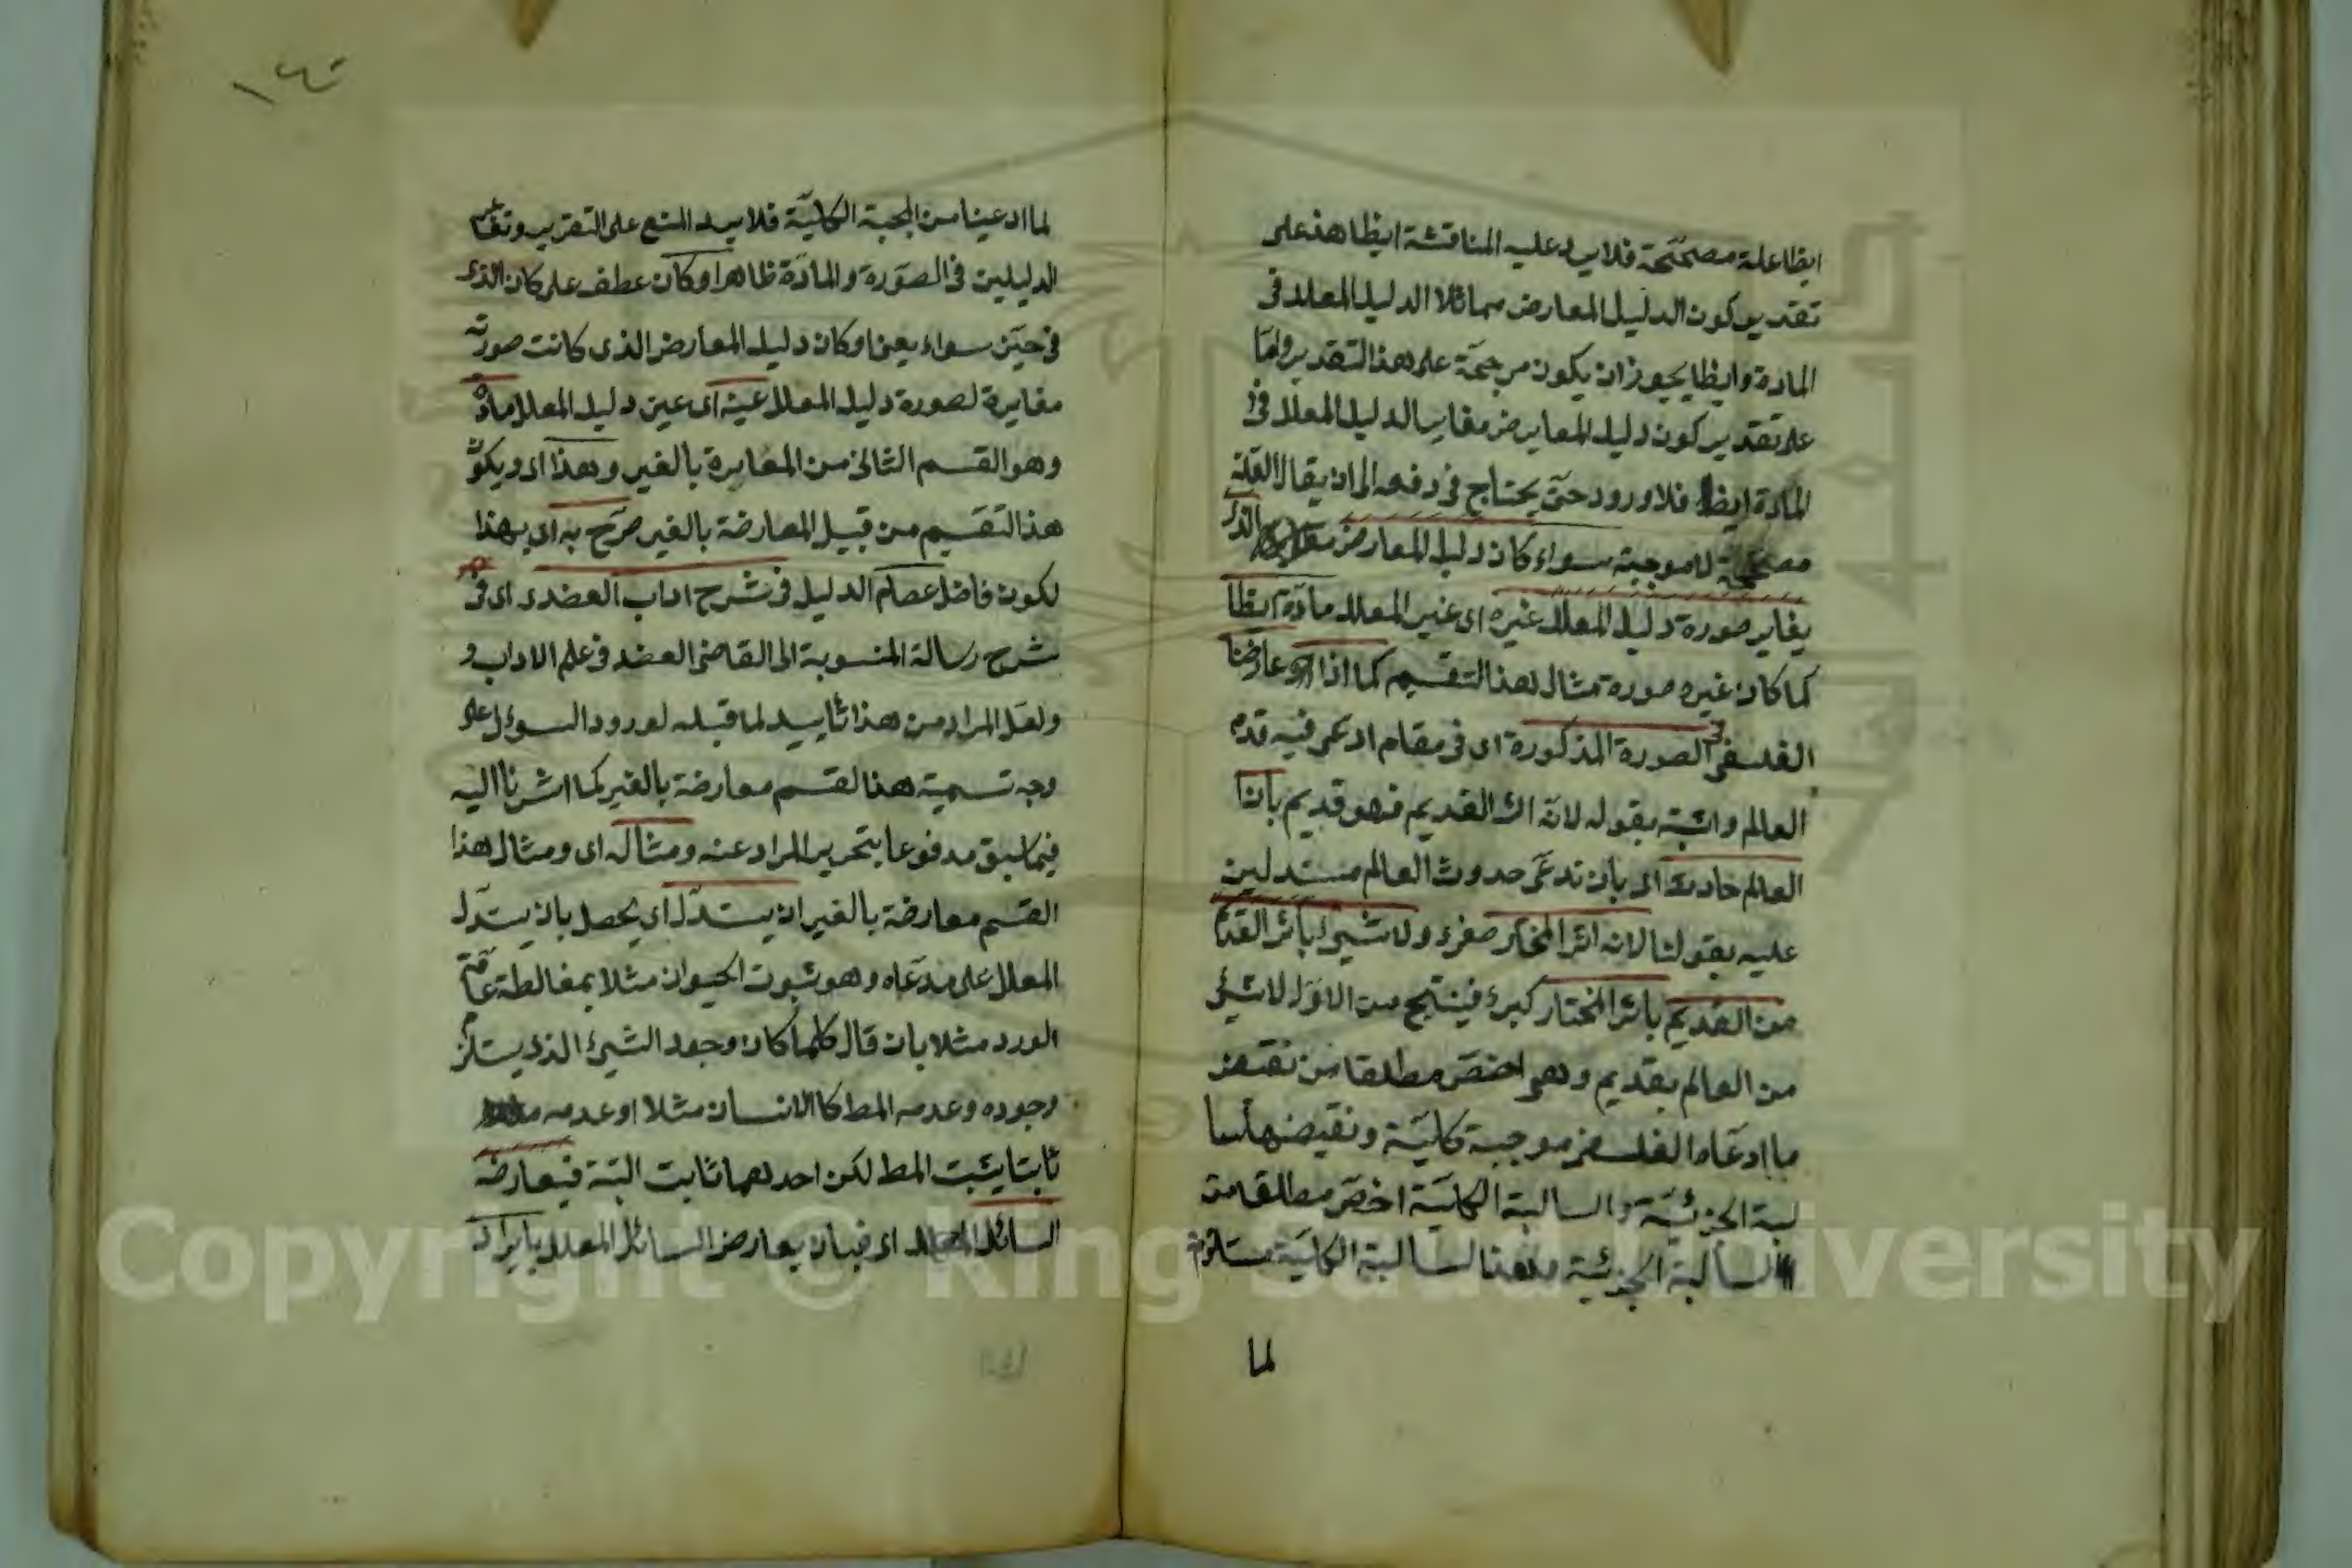 ايظا علة مصححة فلا يرد عليه المناقشة ايظا هذ على
تقدير كون الدليل المعارض مماثلا الدليل المعلل فى
المادة وايظا يجوز ان يكون مرجحة على هذ التقدير واما
على تقدير كون دليل المعارض مغاير الدليل المعلل فى
المادة ايظا فلا ورود حتى يحتاج فى دفعه الى ان يقال العلة
مصححة لا موجبة سواء كان دليل المعارض الذى
يغاير صورة دليل المعلل غيره اى غير المعلل مادة ايظا
كما كان غيره صورة مثال لهذ التقسيم كما اذا عارضنا
الفلسفى فى الصورة المذكورة اى فى مقام ادعى فيه قدم
العالم واثبته بقوله لانه اثر القديم فهو قديم بان
العالم حادث اى بان ندعى حدوث العالم مستدلين
عليه بقولنا لانه اثر المختار صغرى ولا شىء باثر القديم
من القديم باثر المختار كبرى فينتج من الاول لا شىء
من العالم بقديم وهو اخص مطلقا من نقيض
ما ادعاه الفلسفى موجبة كلية ونقيضها سا
لبة الجزئية والسالبة الكلية اخص مطلقا من
السالبة الجزئية وهذ السالبة الكلية مستلزمة
لما
١٤٦
لما ادعينا من الموجبة الكلية فلا يرد المنع على التقريب وتغاير
الدليلين فى الصورة والمادة ظاهر اوكان عطف على كان الذى
فى حيّز سواء يعنى اوكان دليل المعارض الذى كانت صورته
مغايرة لصورة دليل المعلل عينه اى عين دليل المعلل مادة
وهو القسم الثانى من المعايرة بالغير وهذا اى ويكون
هذ التقسيم من قبيل المعارضة بالغير صرّح به اى بهذا
لكون فاضل عصام الدليل فى شرح اداب العضدى اى فى
شرح رسالة المنسوبة الى القاضى العضد فى علم الاداب و
ولعل المراد من هذا تأييد لما قبله لورود السوءل على
وجه تسمية هذ القسم معارضة بالغير كما اشرنا اليه
فيما سبق مدفوعا بتحرير المراد عنه ومثاله اى ومثال هذا
القسم معارضة بالغير ان يستدل اى يحصل بان يستدل
المعلل على مدعاه وهو ثبوت الحيوان مثلا بمغالطة عامة
الورد مثلا بان قال كلما كان وجود الشىء الذى يستلزم
وجوده وعدمه المط كالانسان مثلا او عدمه
ثابتا يثبت المط لكن احدهما ثابت البتة فيعارضه
السائل اى فبان يعارض السائل المعلل بايراد
Copyright © King Saud University